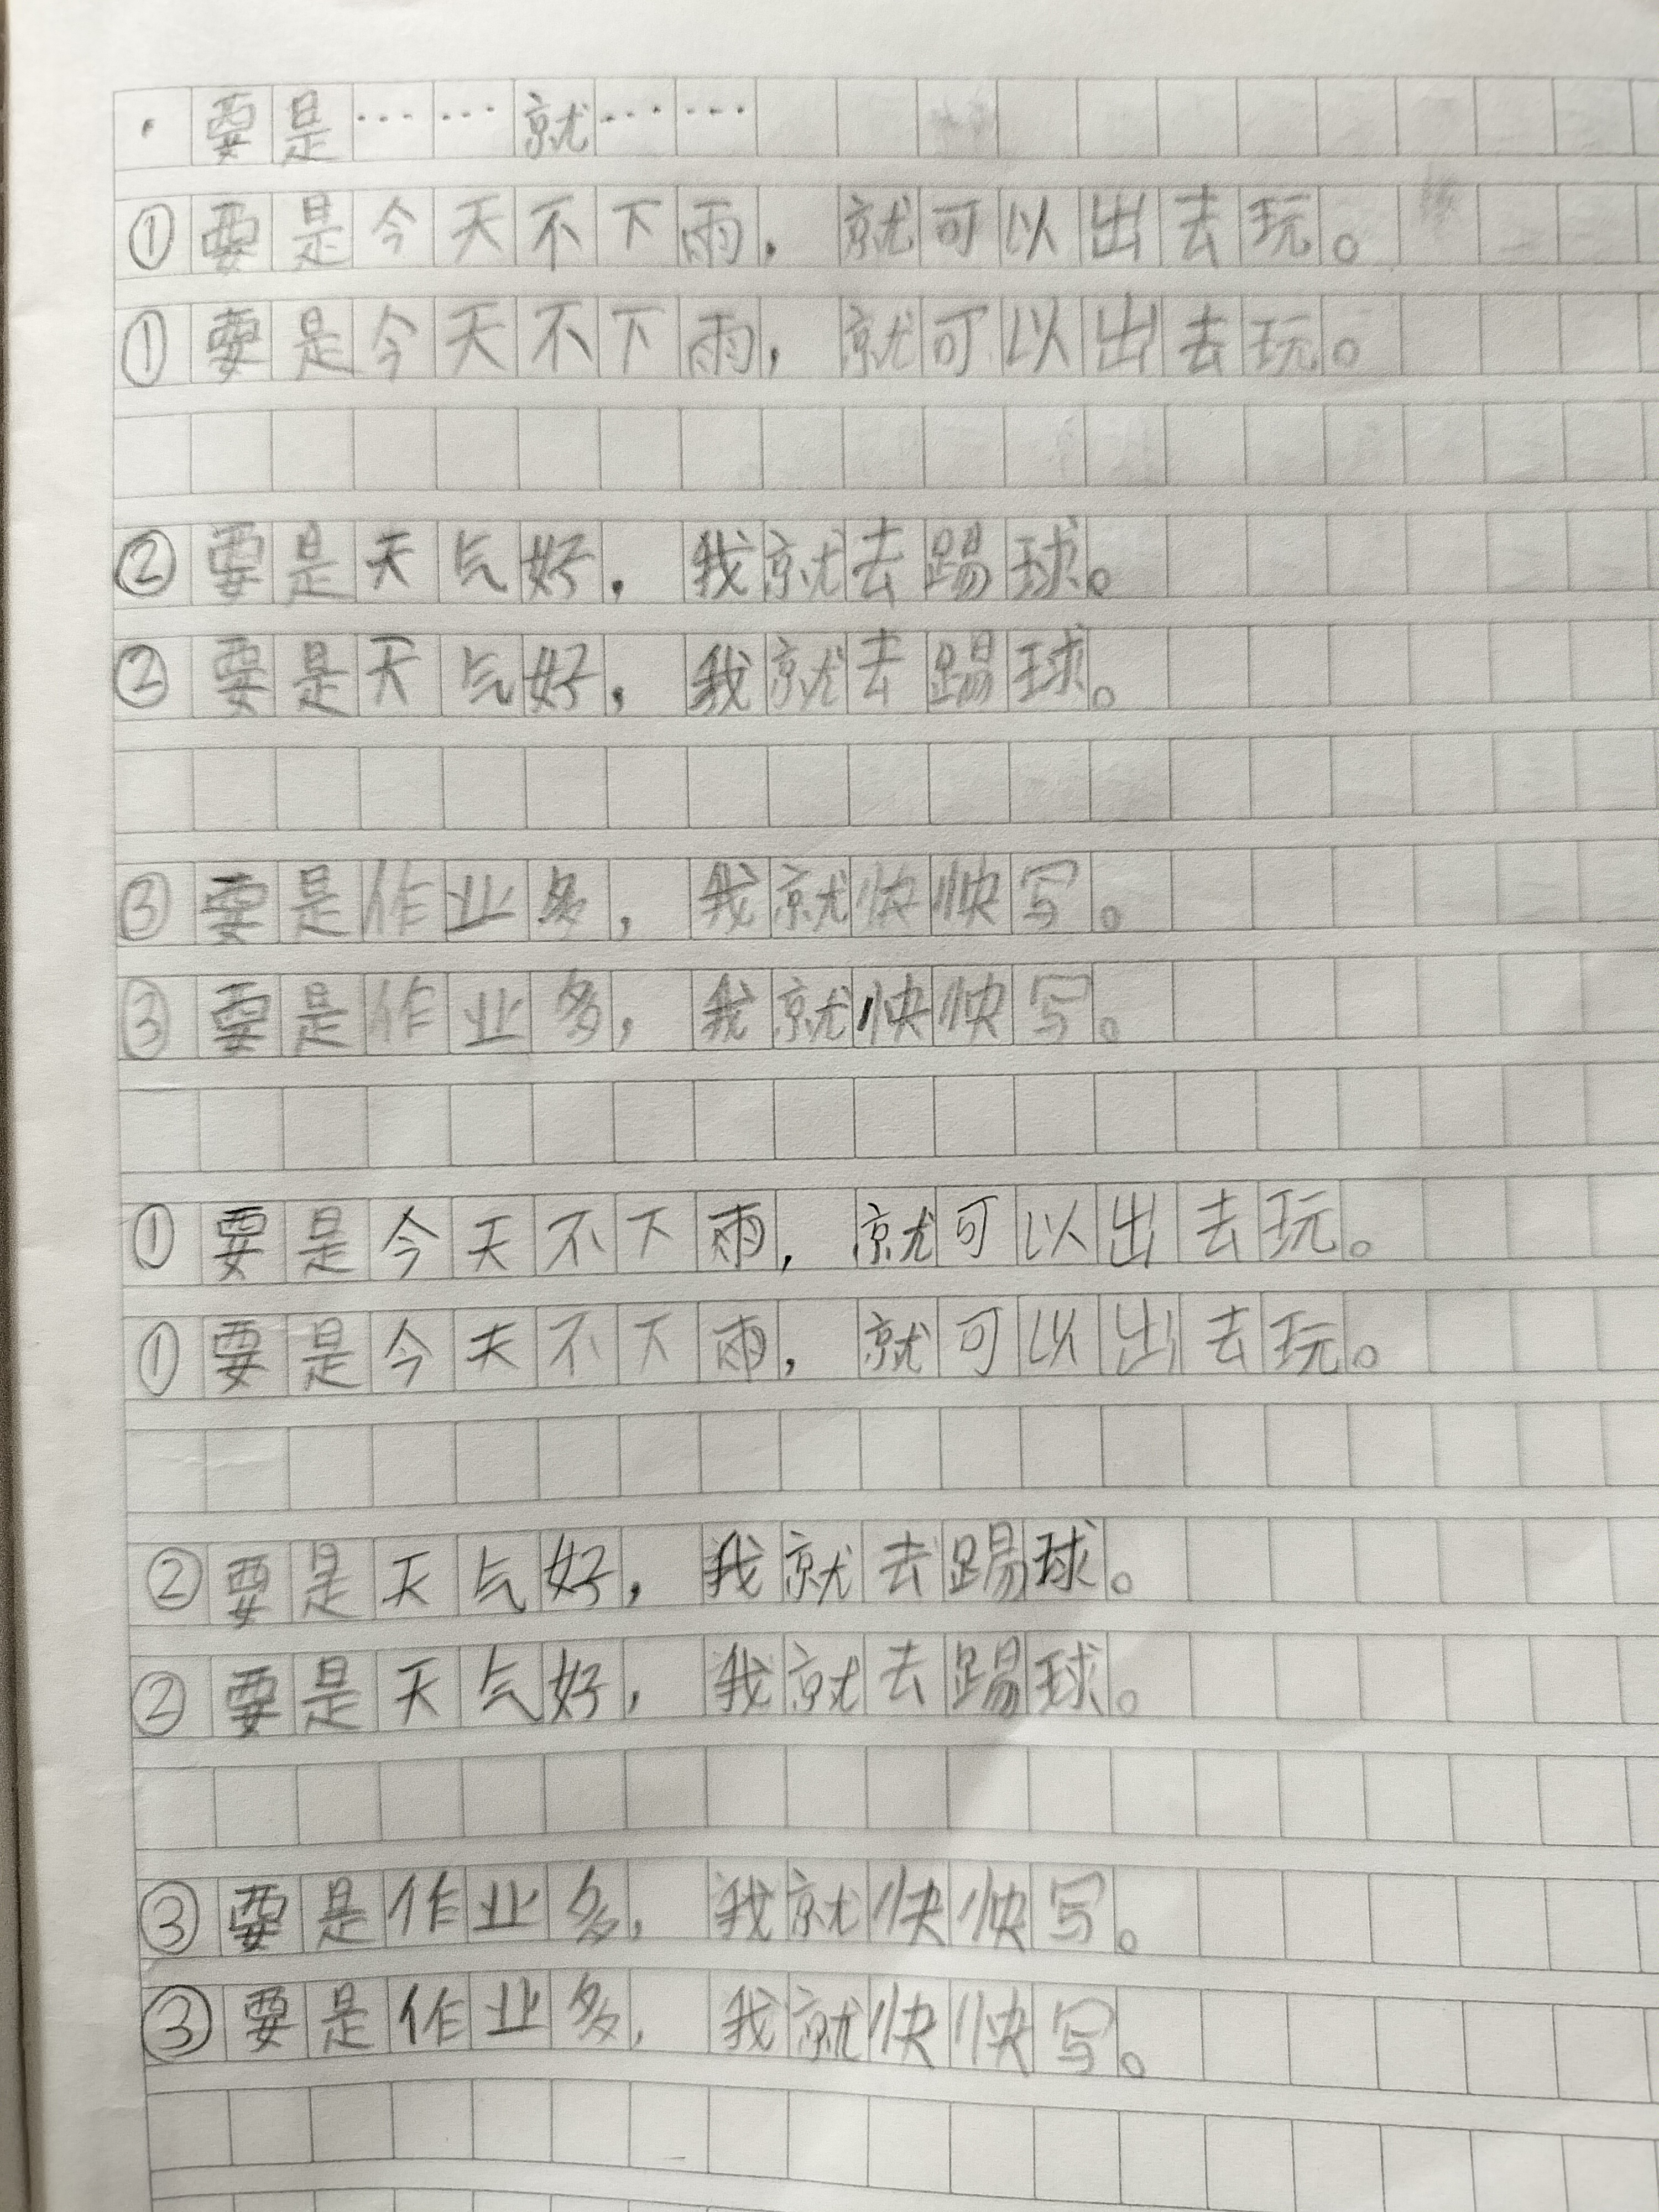 · 要是……就……
①要是今天不下雨，就可以出去玩。
①要是今天不下雨，就可以出去玩。
②要是天气好，我就去踢球。
②要是天气好，我就去踢球。
③要是作业多，我就快快写。
③要是作业多，我就快快写。
①要是今天不下雨，就可以出去玩。
①要是今天不下雨，就可以出去玩。
②要是天气好，我就去踢球。
②要是天气好，我就去踢球。
③要是作业多，我就快快写。
③要是作业多，我就快快写。